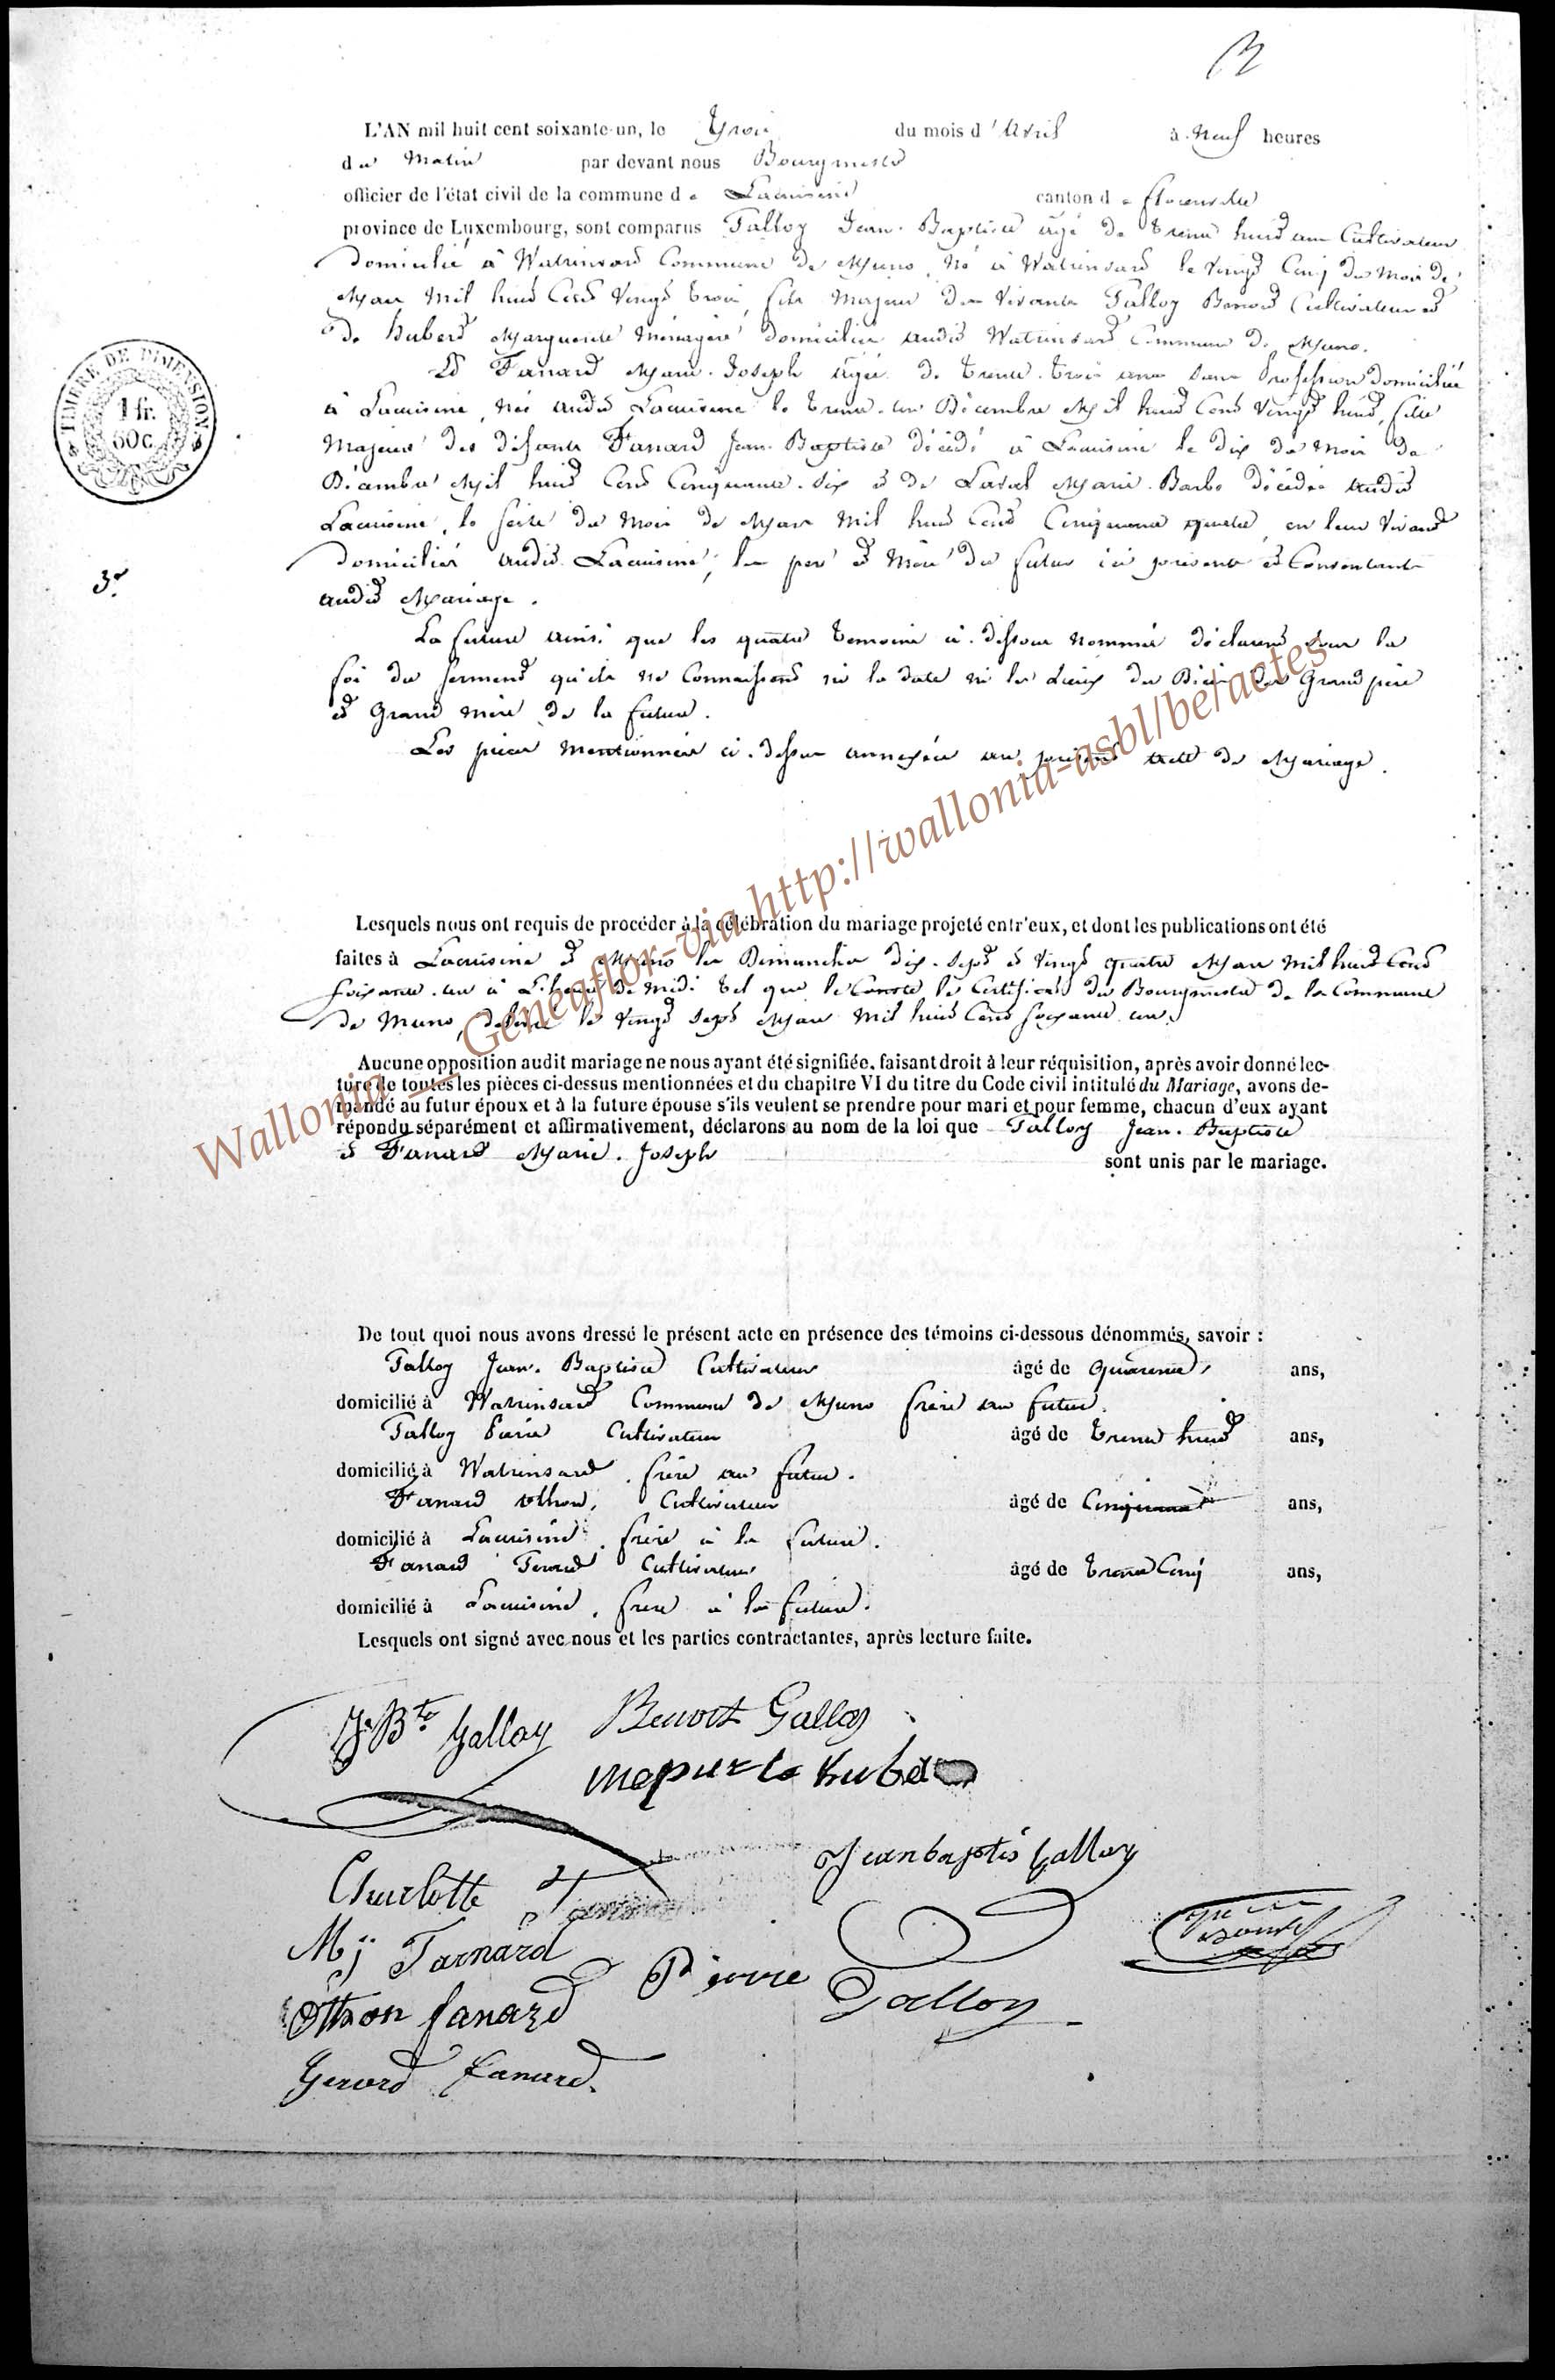 L'AN mil huit cent soixante-un, le Trois du mois d'Avril à Neuf heures
du Matin par devant nous Bourgmestre
officier de l'état civil de la commune de Lacuisine canton de Florenville
province de Luxembourg, sont comparus Talloy Jean-Baptiste âgé de trente huit ans Cultivateur
domicilié à Watrinsard Commune de Muno, né à Watrinsard le vingt Cinq du Mois de
Mars Mil huit Cent Vingt trois, fils Majeur des Vivants Talloy Benoit Cultivateur et
de Hubert Marguerite ménagère domiciliés audit Watrinsard Commune de Muno.
Et Fanard Marie-Joseph âgée de trente-trois ans sans Profession domiciliée
à Lacuisine, née audit Lacuisine le trente-un Décembre Mil huit Cent Vingt huit, fille
Majeure des défunts Fanard Jean-Baptiste décédé à Lacuisine le dix du Mois de
Décembre Mil huit Cent Cinquante-six et de Laval Marie-Barbe décédée audit
Lacuisine, le seize du Mois de Mars Mil huit Cent Cinquante quatre, en leur Vivant
domiciliés audit Lacuisine; les père et Mère du futur ici présents et Consentants
audit Mariage.
La future ainsi que les quatre temoins ci-dessous Nommés déclarent sous la
foi du serment qu'ils ne Connaissent ni la date ni les Lieux du Décès des Grand père
et Grand mère de la future.
Les pièces Mentionnées ci-dessus annexées au présent acte de Mariage.
Lesquels nous ont requis de procéder à la célébration du mariage projeté entr'eux, et dont les publications ont été
faites à Lacuisine et Muno les Dimanches dix-sept et Vingt quatre Mars Mil huit Cent
soixante-un à l'heure de Midi tel que le Conste le Certificat du Bourgmestre de la Commune
de Muno, délivré le Vingt Sept Mars Mil huit Cent soixante un.
Aucune opposition audit mariage ne nous ayant été signifiée, faisant droit à leur réquisition, après avoir donné lec-
ture de toutes les pièces ci-dessus mentionnées et du chapitre VI du titre du Code civil intitulé du Mariage, avons de-
mandé au futur époux et à la future épouse s'ils veulent se prendre pour mari et pour femme, chacun d'eux ayant
répondu séparément et affirmativement, déclarons au nom de la loi que Talloy Jean-Baptiste
et Fanard Marie-Joseph sont unis par le mariage.
De tout quoi nous avons dressé le présent acte en présence des témoins ci-dessous dénommés, savoir :
Talloy Jean-Baptiste Cultivateur âgé de quarante ans,
domicilié à Watrinsard Commune de Muno frère au futur.
Talloy Cultivateur âgé de trente huit ans,
domicilié à Watrinsard, frère au futur.
Fanard Othon, Cultivateur âgé de Cinquante ans,
domicilié à Lacuisine, frère à la future.
Fanard Cultivateur âgé de trente Cinq ans,
domicilié à Lacuisine, frère à la future.
Lesquels ont signé avec nous et les parties contractantes, après lecture faite.
J. Bte Talloy Benoit Talloy
Jeanbaptis talloy
Charlotte
M j Farnard
Pierre Talloy
Otthon fanard
Gerard fanard.
TIMBRE DE DIMENSION
1 fr.
60 c.
3e
Wallonia __ Geneaflor-via http://wallonia-asbl/be/actes